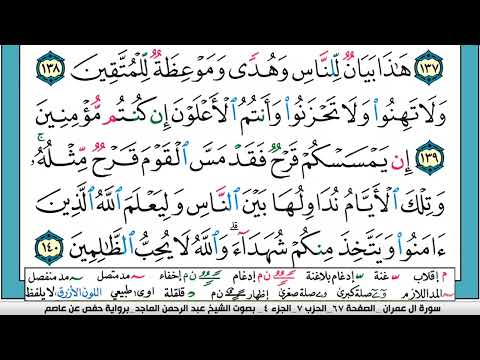 ١٣٧ هَـٰذَا بَيَانٌ لِّلنَّاسِ وَهُدًى وَمَوْعِظَةٌ لِّلْمُتَّقِينَ ١٣٨
وَلَا تَهِنُوا۟ وَلَا تَحْزَنُوا۟ وَأَنتُمُ ٱلْأَعْلَوْنَ إِن كُنتُم مُّؤْمِنِينَ
١٣٩ إِن يَمْسَسْكُمْ قَرْحٌ فَقَدْ مَسَّ ٱلْقَوْمَ قَرْحٌ مِّثْلُهُۥ ۚ
وَتِلْكَ ٱلْأَيَّامُ نُدَاوِلُهَا بَيْنَ ٱلنَّاسِ وَلِيَعْلَمَ ٱللَّهُ ٱلَّذِينَ
ءَامَنُوا۟ وَيَتَّخِذَ مِنكُمْ شُهَدَآءَ ۗ وَٱللَّهُ لَا يُحِبُّ ٱلظَّـٰلِمِينَ ١٤٠
م إقلاب غنة إدغام بلاغنة ن م إدغام إخفاء مد متصل مد منفصل
المد اللازم وصلة كبرى وصلة صغرى إظهار ن م قلقلة اوى؛ طبيعي اللون الأزرق لا يلفظ
سورة ال عمران _ الصفحة ٦٧ _ الحزب ٧ _ الجزء ٤ _ بصوت الشيخ عبد الرحمن الماجد _ برواية حفص عن عاصم